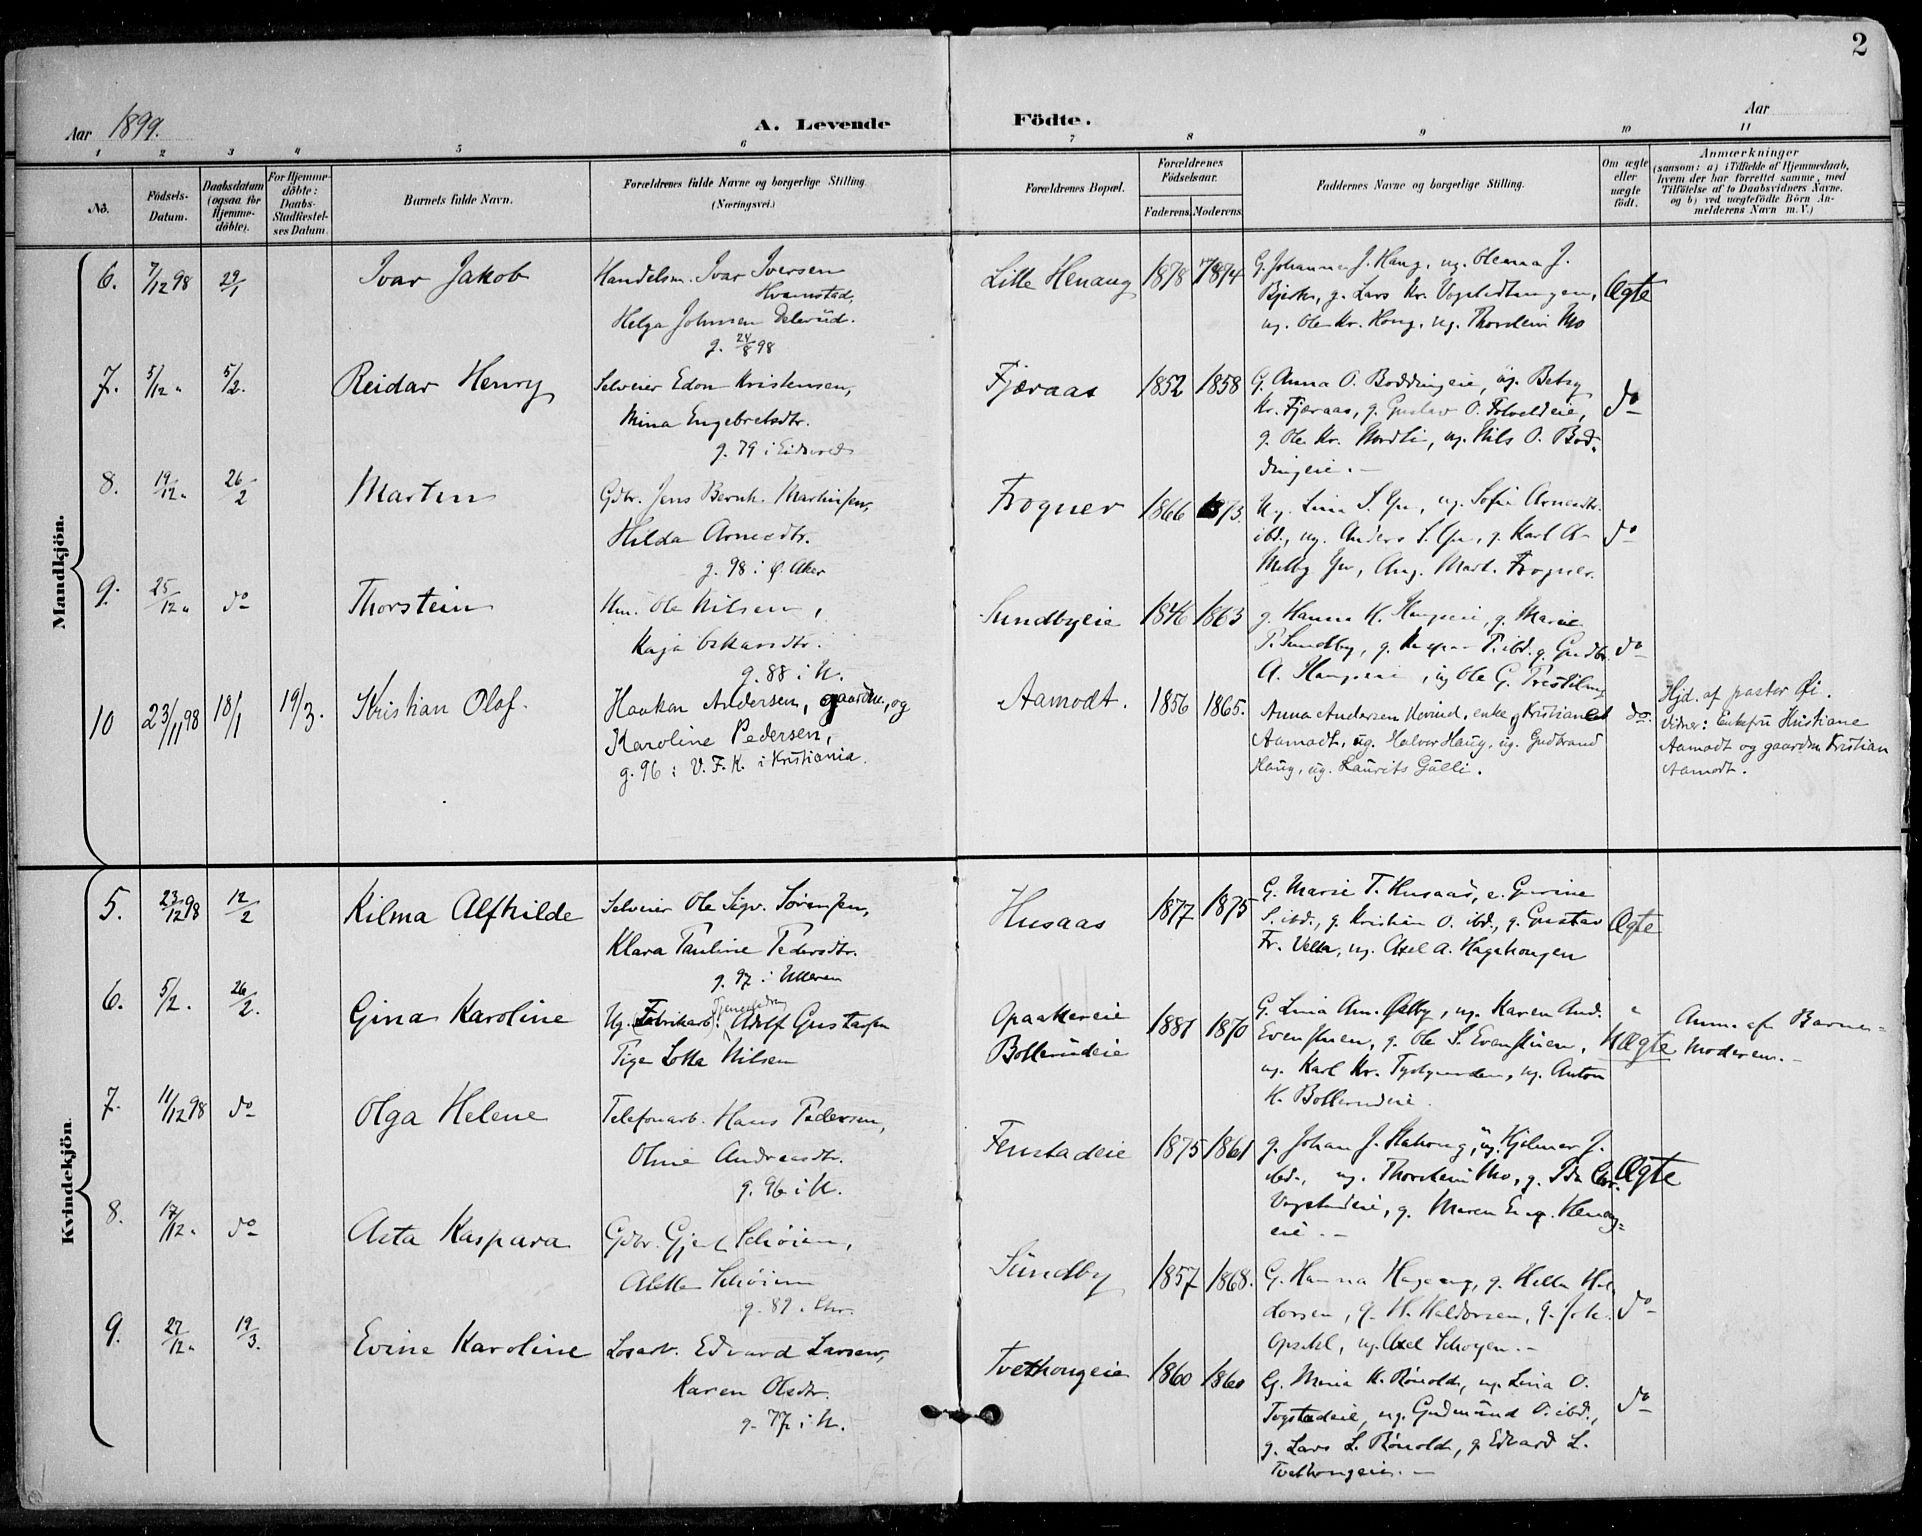 2
Aar 1899.
A. Levende Födte.
Aar
1 2 3 4 5 6 7 8 9 10 11
No.
Födsels-
Datum.
Daabsdatum
(ogsaa for
Hjemme-
döbte).
For Hjemme-
döbte:
Daabs-
Stadfæstel-
ses Datum.
Barnets fulde Navn.
Forældrenes fulde Navne og borgerlige Stilling.
(Næringsvei.)
Forældrenes Bopæl.
Forældrenes
Födselsaar.
Faderens. Moderens.
Faddernes Navne og borgerlige Stilling.
Om ægte
eller
uægte
födt.
Anmærkninger
(saasom: a) i Tilfælde af Hjemmedaab,
hvem der har forrettet samme, med
Tilföielse af to Daabsvidners Navne.
og b) ved uægtefödte Börn An-
melderens Navn m. V.)
Mandkjön.
6. 7/12 98 29/1 Ivar Jakob
Handelsm. Ivar Iversen
Hvamstad,
Helga Johnsen
g. 24/8 98
Lille Henaug 1878 1874
G. Johanna J. Haug, ug. J.
g. Lars Kr.
ug. Ole Kr. Haug, ug. Thorstein Mo
Ægte
7. 5/12 " 5/2. Reidar Henry
Selveier Edon Kristensen,
Mina Engebretsdtr.
g. 79 i Eidsvold
Fjæraas 1852 1858
G. Anna O. Boddingeie, ug. Betsy
Kr. Fjæraas, g. Gustav O.
g. Ole Kr. Nordli, ug. Nils O. Bod-
dingeie. -
do
8. 19/12 " 26/2 Marten
Gdbr. Jens Bernh. Martinsen,
Hilda Arnesdtr.
g. 98 i Ø. Aker
Frogner 1866 1873.
Ug. Lina S. ug. Sofie Arnesdtr.
ibd., ug. Anders S. g. Karl A-
Aug. Mart. Frogner.
do
9. 25/12 " do Thorstein
Hm. Ole Nilsen,
Kaja Oskarsdtr.
g. 88 i N.
Sundbyeie 1846 1863
g. Hanna K. g. Marie
P. Sundby, g. P. ibd. g. Gudbr.
A. ug Ole G.
do
10 23/11 98 18/1 19/3. Kristian Olaf.
Haakon Andersen, gaardm., og
Karoline Pedersen,
g. 96 i V. F. K. i Kristiania.
Aamodt. 1856 1865.
Anna Andersen enke, g Kristian
Aamodt, ug. Halvor Haug, ug. Gudbrand
Haug, ug. Laurits Gulli.
do.
Hjd. af pastor Øi.
Vidner: Enkefru Kristiane
Aamodt og gaardm Kristian
Aamodt.
Kvindekjön.
5. 23/12 98 12/2 Kilma Alfhilde
Selveier Ole Sigv. Sørensen,
Klara Pauline Pedersdtr.
g. 97 i Ulleren
Husaas 1877 1875
G. Marie T. Husaas, e. Gurine
S. ibd., g. Kristian O. ibd., g. Gustav
Fr. ug. Axel A. Hagahougen
Ægte
6. 5/2. 26/2. Gina Karoline
Ug. Fabrikarb. Adolf Gustafsen
Pige Lotta Nilsen
Opaakereie
Bollerudeie
1881 1870
G. Lina Am. ug. Karen And.
g. Ole S.
ug. Karl Kr. ug. Anton
K. Bollerudeie.
Uægte
Anm. af Barnes-
Moderen. -
7. 11/12 98 do Olga Helene
Telefonarb. Hans Pedersen,
Oline Andreasdtr.
g. 96 i N.
Fenstadeie 1875 1861
g. Johan J. ug. Hjelmer J.
ibd., ug. Thorstein Mo, g. Ida Chr.
g. Maren
eie. -
Ægte
8. 17/12 " do Asta Kaspara
Gdbr. Gjert Schøien,
Alette Schøien
g. 89 i Chr.
Sundby 1857 1868.
G. Hanna g. Hal-
dorsen, g. H. Haldorsen, g. Joh.
Opsahl, ug. Axel Schøyen. -
do
9. 27/12 " 19/3. Evine Karoline
Losarb. Edvard Larsen,
Karen Olsdtr.
g. 77 i N.
Tvethougeie 1860 1860
G. Maria K. Rönold, ug. Lina O.
Togstadeie, ug. Gudmund O. ibd.,
g. Lars L. Rönold, g. Edvard L.
Tvethougeie. -
do